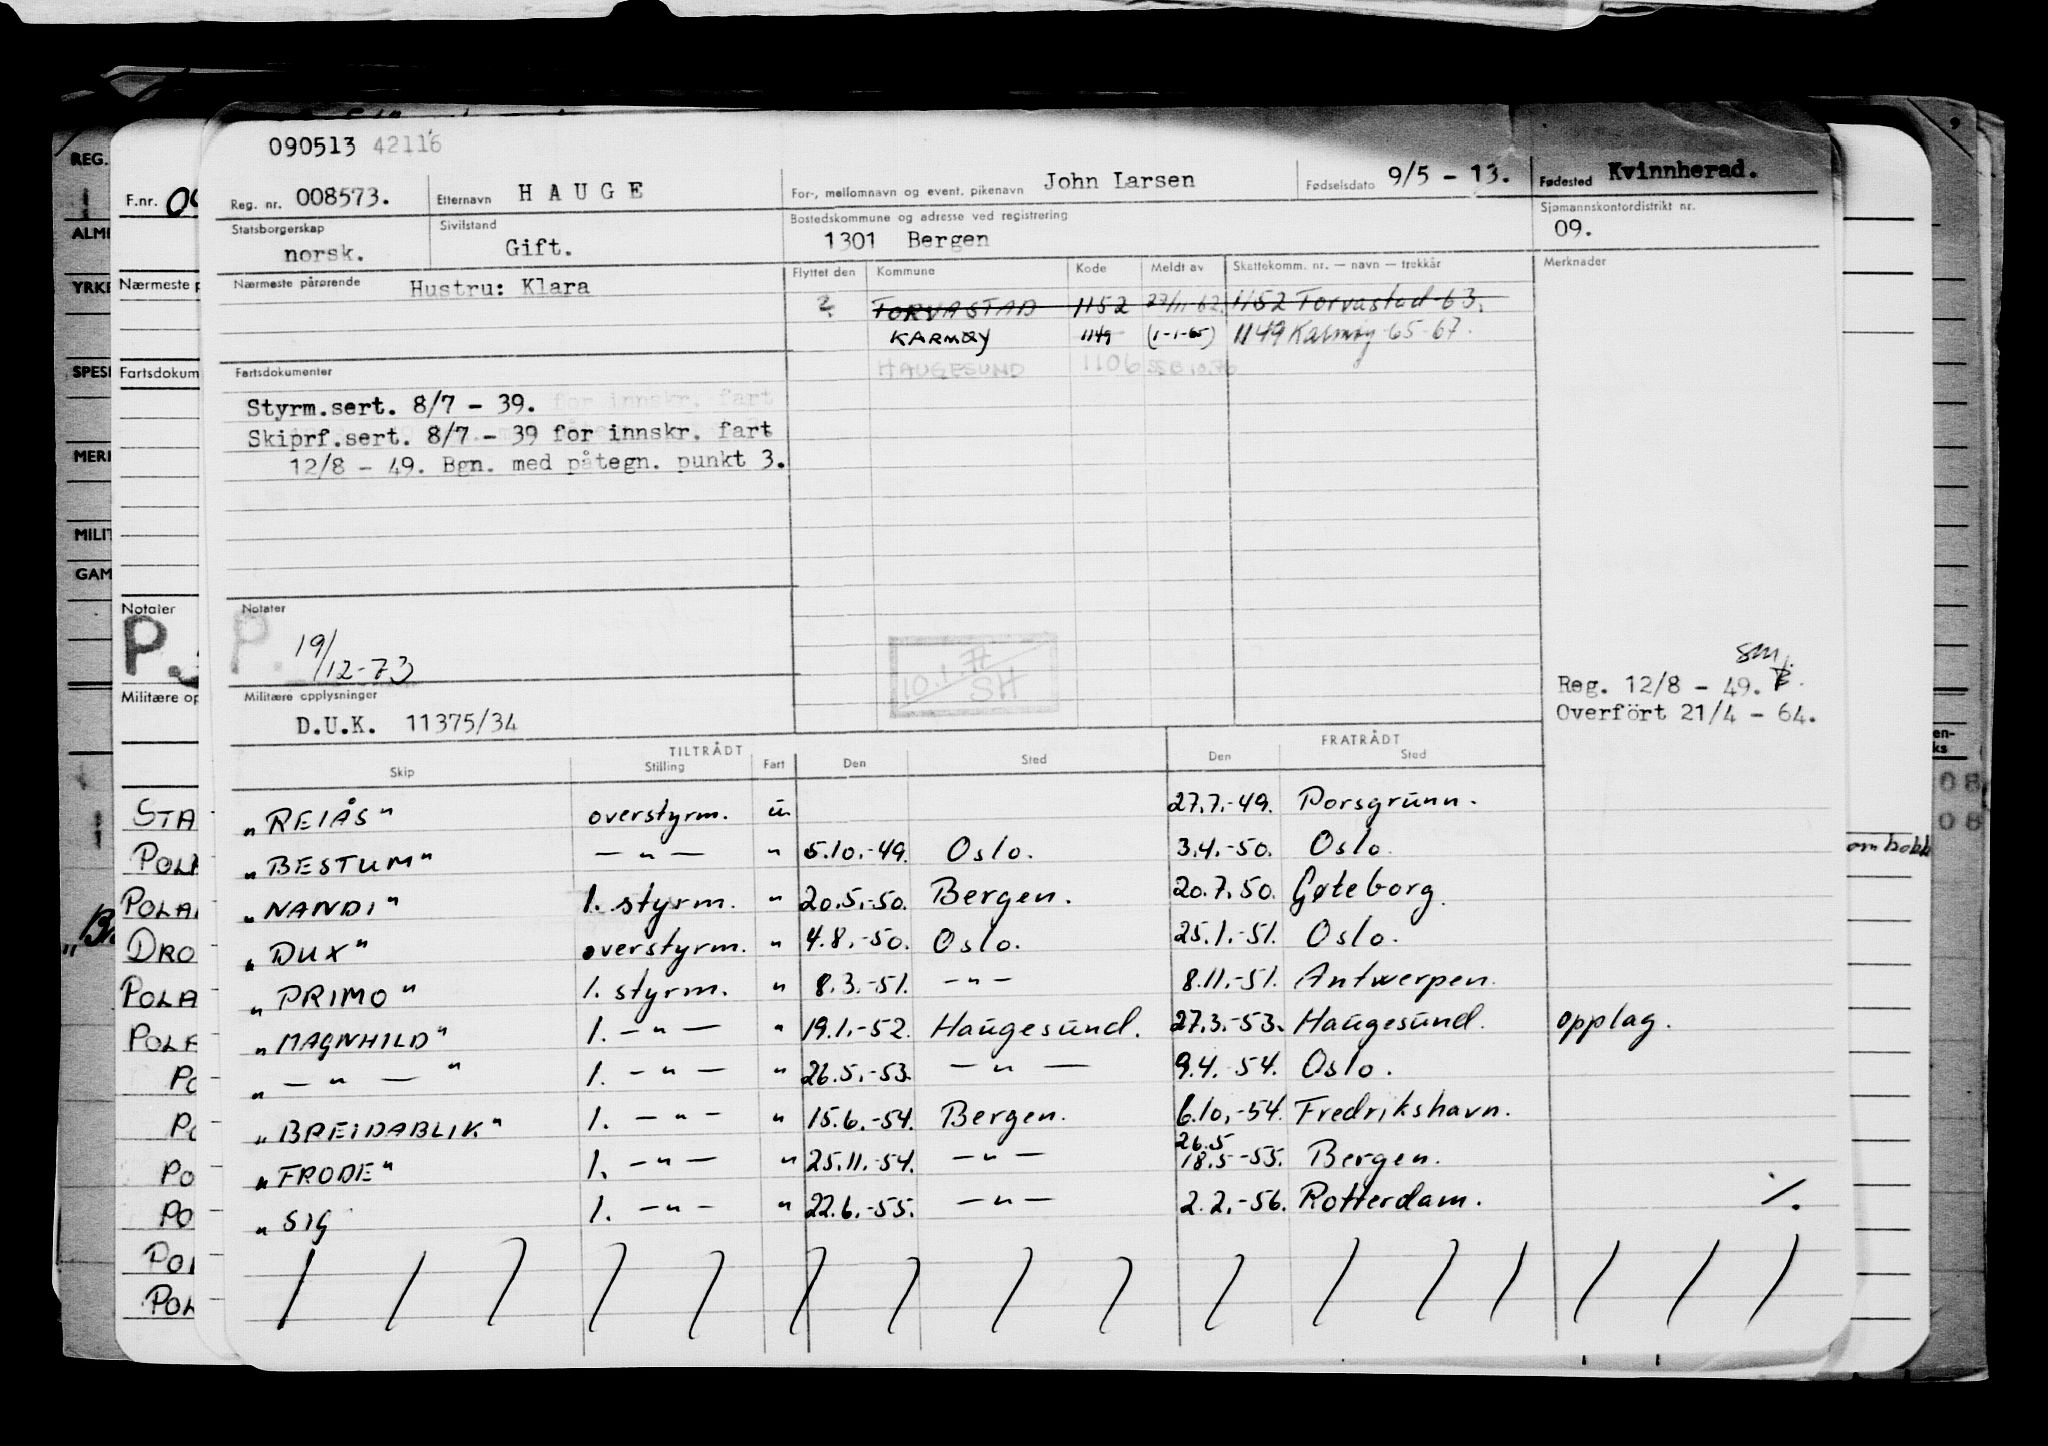 090513 42116
Reg. nr. 008573. Etternavn HAUGE For-, mellomnavn og event. pikenavn John Larsen Fødselsdato 9/5 - 13. Fødested Kvinnherad.
Statsborgerskap norsk. Sivilstand Gift. Bostedskommune og adresse ved registrering 1301 Bergen Sjømannskontordistrikt nr. 09.
Nærmeste pårørende Hustru: Klara
Flyttet den Kommune Kode Meldt av Skattekomm. nr. — navn — trekkår Merknader
? TORVASTAD 1152 27/11-62. 1152 Torvastad-63.
KARMØY 1149 (1-1-65) 1149 Karmøy-65-67.
HAUGESUND 1106
Fartsdokumenter
Styrm.sert. 8/7 - 39. for innskr. fart
Skiprf.sert. 8/7 - 39 for innskr. fart
12/8 - 49. Bgn. med påtegn. punkt 3.
Notater
P. 19/12-73
SH
Militære opplysninger
D.U.K. 11375/34
sm.
Reg. 12/8 - 49.
Overfört 21/4 - 64.
TILTRÅDT FRATRÅDT
Skip Stilling Fart Den Sted Den Sted
"REIÅS" overstyrm. u 27.7.-49. Porsgrunn.
"BESTUM" — " — " 5.10.-49. Oslo. 3.4.-50. Oslo.
"NANDI" 1. styrm. " 20.5.-50. Bergen. 20.7.50. Gøteborg.
"DUX" overstyrm. " 4.8.-50. Oslo. 25.1.-51. Oslo.
"PRIMO" 1. styrm. " 8.3.-51. — " — 8.11.-51. Antwerpen.
"MAGNHILD" 1. — " — " 19.1.-52. Haugesund. 27.3.-53. Haugesund. opplag.
" — " — " 1. — " — " 26.5.-53. — " — 9.4.-54. Oslo.
"BREIDABLIK" 1. — " — " 15.6.-54. Bergen. 6.10.-54. Fredrikshavn.
26.5
"FRODE" 1. — " — " 25.11.-54. — " — 18.5-55. Bergen.
"SIG 1. — " — " 22.6.-55. — " — 2.2.-56. Rotterdam. ./.
REG.
ALM
YRKE
SPESI
MERI
MILIT
GAM
F.nr.
Nærmeste p
Fartsdokum
Notater
P.
Militære op
STA
POLA
DRO
POLA
PO
PO
PO
PO
POL
POL
om bokk
08
08